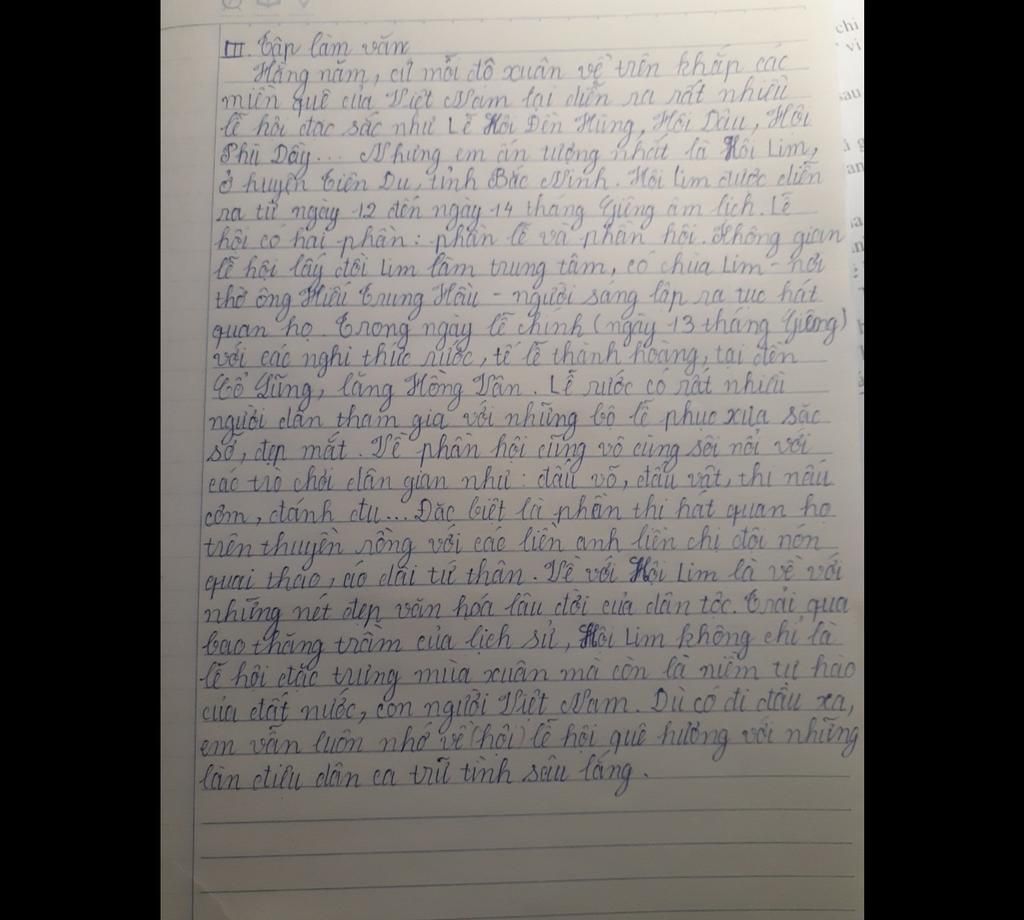 III. Tập làm văn
Hằng năm, cứ mỗi độ xuân về trên khắp các
miền quê của Việt Nam lại diễn ra rất nhiều
lễ hội đặc sắc như Lễ Hội Đền Hùng, Hội Dâu, Hội
Phủ Dầy... Nhưng em ấn tượng nhất là Hội Lim,
ở huyện Tiên Du, tỉnh Bắc Ninh. Hội Lim được diễn
ra từ ngày 12 đến ngày 14 tháng Giêng âm lịch. Lễ
hội có hai phần: phần lễ và phần hội. Không gian
lễ hội lấy đồi Lim làm trung tâm, có chùa Lim - nơi
thờ ông Hiếu Trung Hầu - người sáng lập ra tục hát
quan họ. Trong ngày lễ chính (ngày 13 tháng Giêng)
với các nghi thức rước, tế lễ thành hoàng, tại đền
Cổ Lũng, lăng Hồng Vân. Lễ rước có rất nhiều
người dân tham gia với những bộ lễ phục xưa sặc
sỡ, đẹp mắt. Về phần hội cũng vô cùng sôi nổi với
các trò chơi dân gian như: đấu võ, đấu vật, thi nấu
cơm, đánh đu... Đặc biệt là phần thi hát quan họ
trên thuyền rồng với các liền anh liền chị đội nón
quai thao, áo dài tứ thân. Về với Hội Lim là về với
những nét đẹp văn hóa lâu đời của dân tộc. Trải qua
bao thăng trầm của lịch sử, Hội Lim không chỉ là
lễ hội đặc trưng mùa xuân mà còn là niềm tự hào
của đất nước, con người Việt Nam. Dù có đi đâu xa,
em vẫn luôn nhớ về (hội) lễ hội quê hương với những
làn điệu dân ca trữ tình sâu lắng.